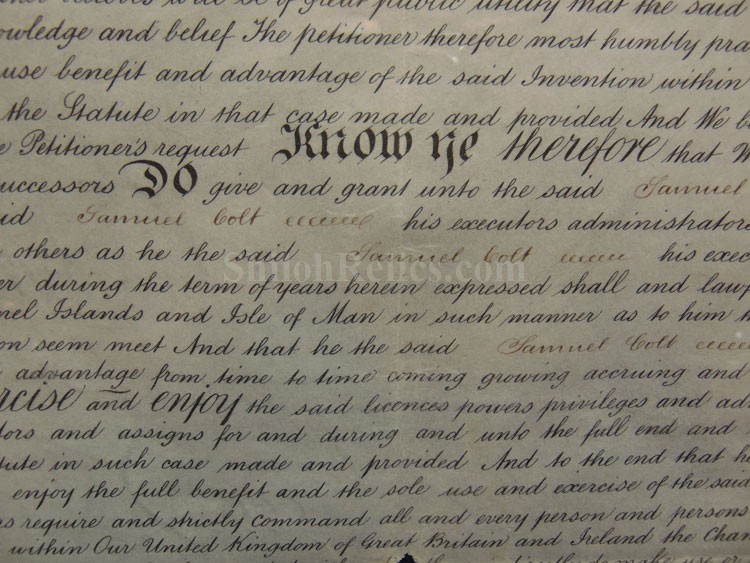 receives will be of great public utility that the said
knowledge and belief The petitioner therefore most humbly pra
use benefit and advantage of the said Invention within
the Statute in that case made and provided And We b
Petitioner's request Know ye therefore that W
uccessors Do give and grant unto the said Samuel
id Samuel Colt his executors administrators
others as he the said Samuel Colt his exec
SimohRelics.com
er during the term of years herein expressed shall and lawf
nel Islands and Isle of Man in such manner as to him t
on seem meet And that he the said Samuel Colt
advantage from time to time coming growing accruing and
rcise and enjoy the said licences powers privileges and ad
tors and assigns for and during and unto the full end and
tute in such case made and provided And to the end that h
enjoy the full benefit and the sole use and exercise of the said
rs require and strictly command all and every person and persons
within Our United Kingdom of Great Britain and Ireland the Chan